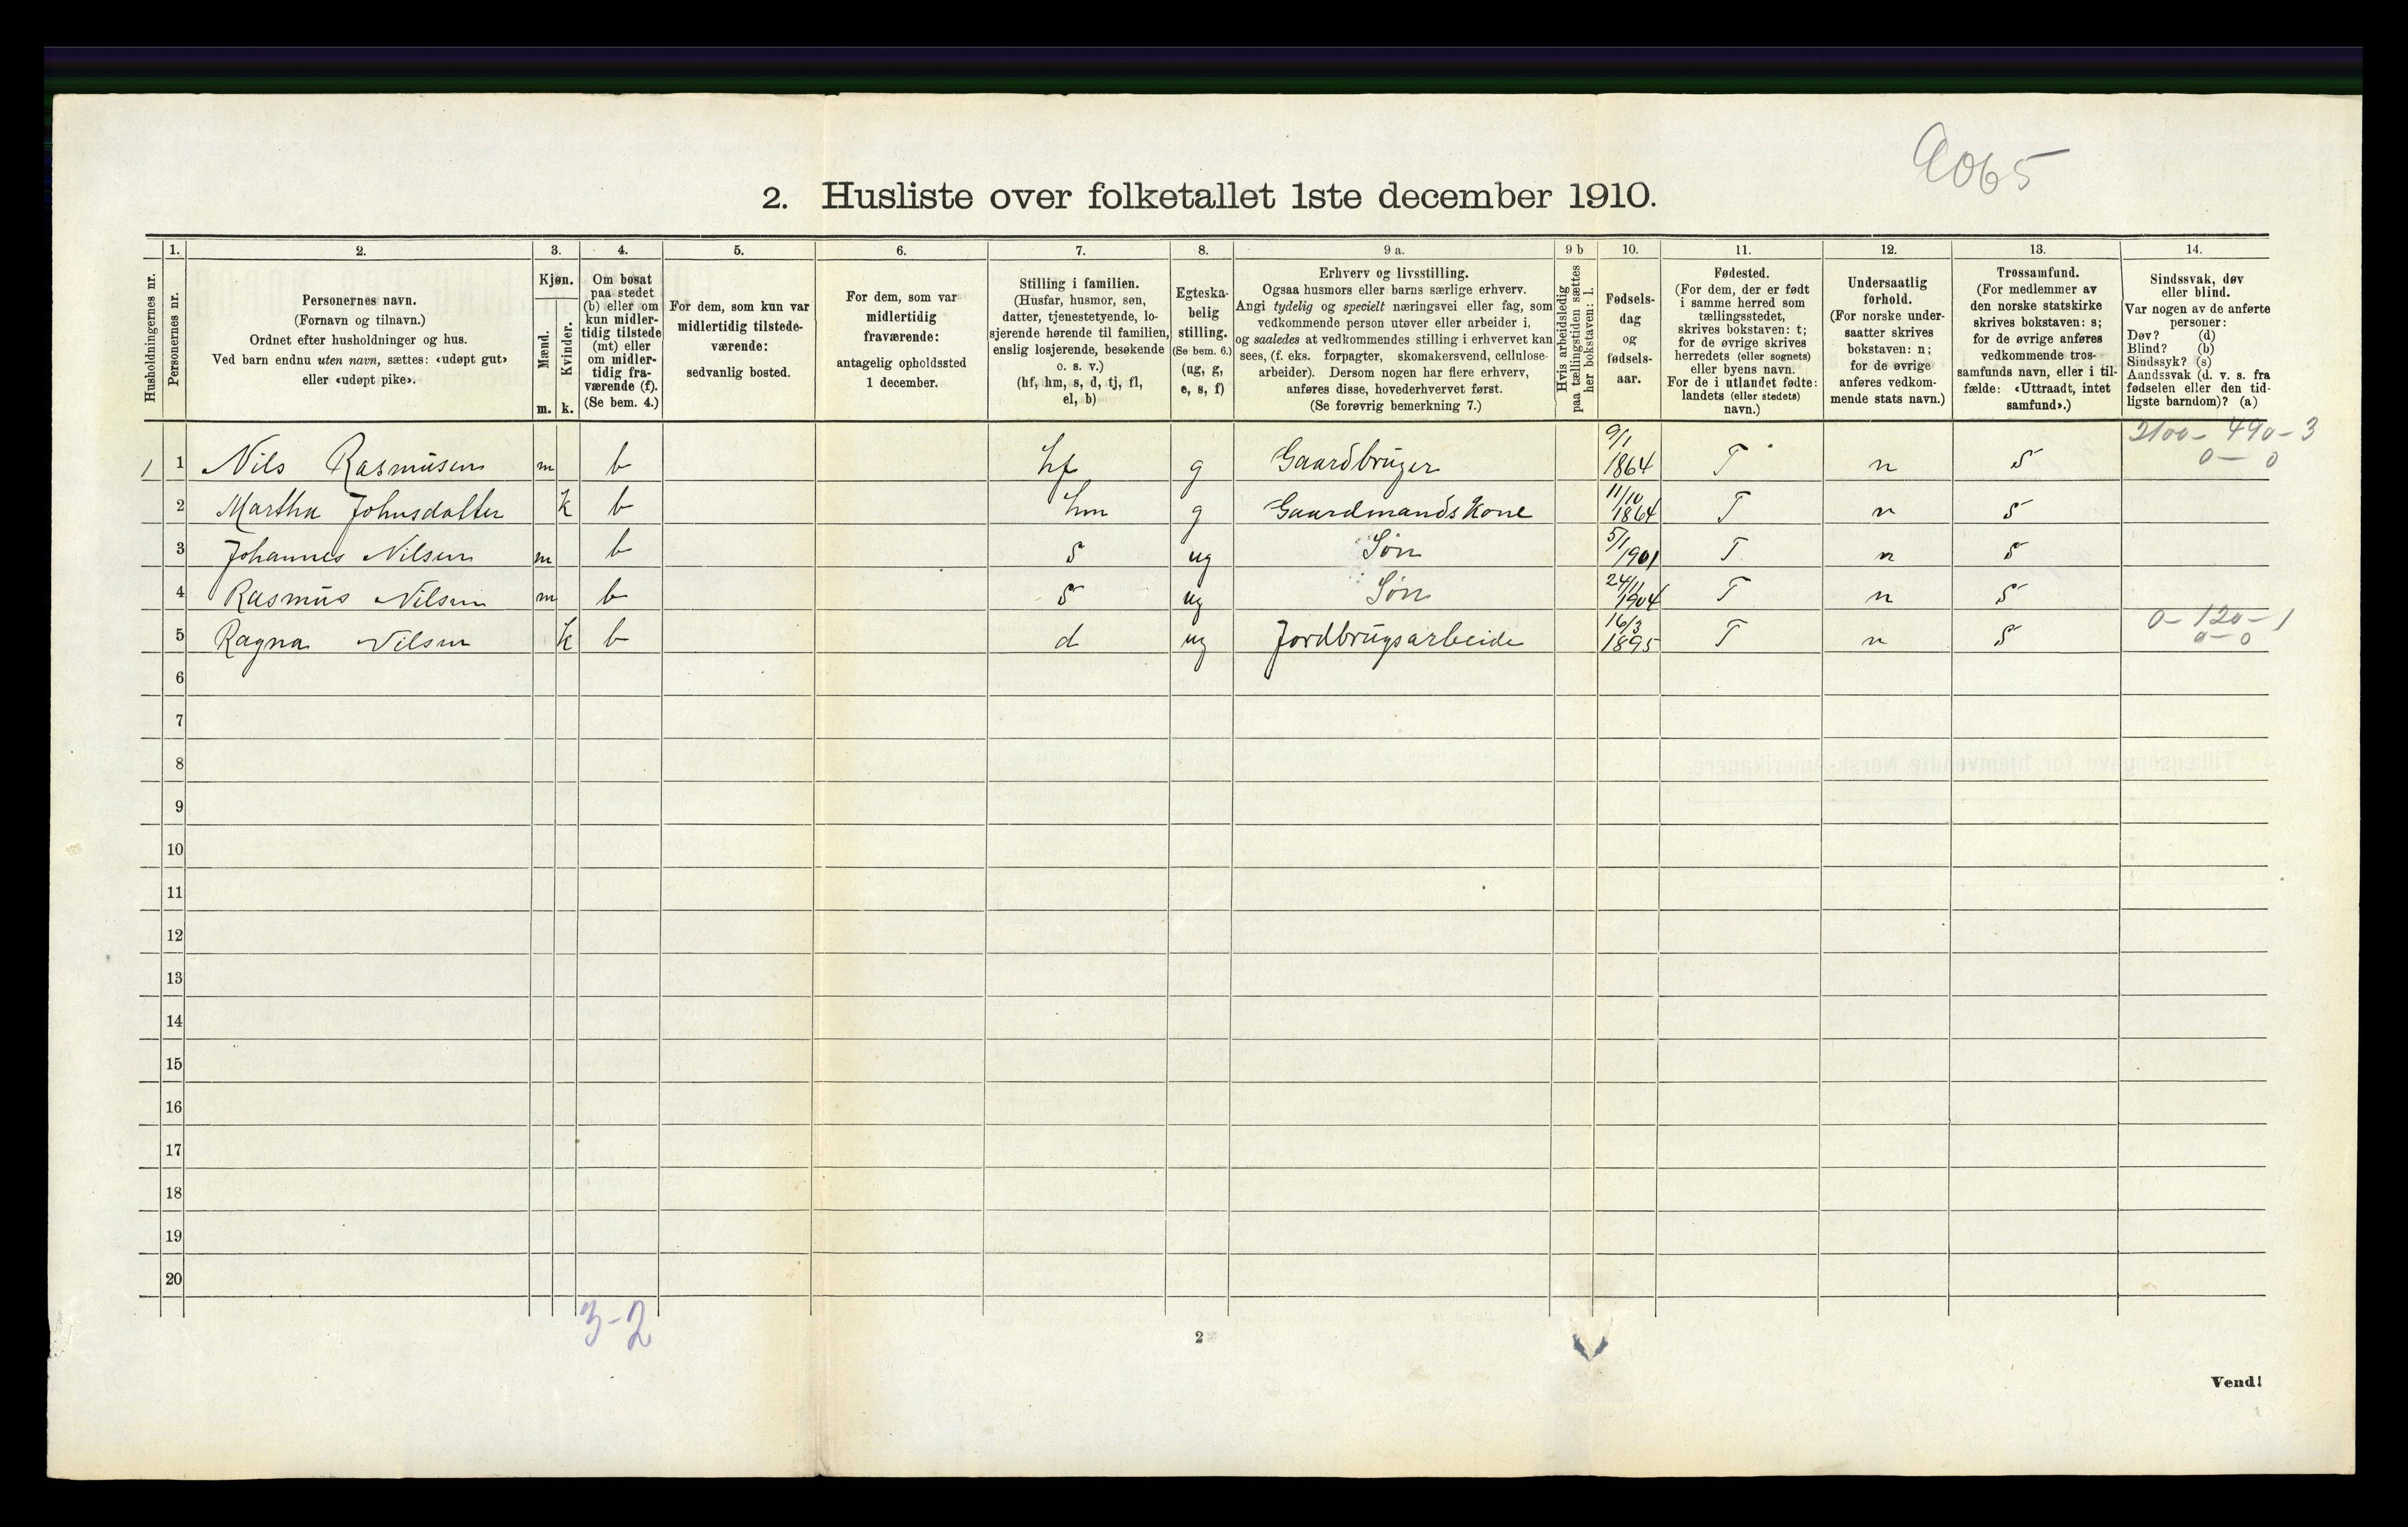 9065
2. Husliste over folketallet 1ste december 1910.
1. 2. 3. 4. 5. 6. 7. 8. 9 a. 9 b 10. 11. 12. 13. 14.
Husholdningernes nr.
Personernes nr.
Personernes navn.
(Fornavn og tilnavn.)
Ordnet efter husholdninger og hus.
Ved barn endnu uten navn, sættes: «udøpt gut»
eller «udøpt pike».
Kjøn.
Mænd.
Kvinder.
m. k.
Om bosat
paa stedet
(b) eller om
kun midler-
tidig tilstede
(mt) eller
om midler-
tidig fra-
værende (f).
(Se bem. 4.)
For dem, som kun var
midlertidig tilstede-
værende:
sedvanlig bosted.
For dem, som var
midlertidig
fraværende:
antagelig opholdssted
1 december.
Stilling i familien.
(Husfar, husmor, søn,
datter, tjenestetyende, lo-
sjerende hørende til familien,
enslig losjerende, besøkende
o. s. v.)
(hf, hm, s, d, tj, fl,
el, b)
Egteska-
belig
stilling.
(Se bem. 6.)
(ug, g,
e, s, f)
Erhverv og livsstilling.
Ogsaa husmors eller barns særlige erhverv.
Angi tydelig og specielt næringsvei eller fag, som
vedkommende person utøver eller arbeider i,
og saaledes at vedkommendes stilling i erhvervet kan
sees, (f. eks. forpagter, skomakersvend, cellulose-
arbeider). Dersom nogen har flere erhverv,
anføres disse, hovederhvervet først.
(Se forøvrig bemerkning 7.)
Hvis arbeidsledig
paa tællingstiden sættes
her bokstaven: l.
Fødsels-
dag
og
fødsels-
aar.
Fødested.
(For dem, der er født
i samme herred som
tællingsstedet,
skrives bokstaven: t;
for de øvrige skrives
herredets (eller sognets)
eller byens navn.
For de i utlandet fødte:
landets (eller stedets)
navn.)
Undersaatlig
forhold.
(For norske under-
saatter skrives
bokstaven: n;
for de øvrige
anføres vedkom-
mende stats navn.)
Trossamfund.
(For medlemmer av
den norske statskirke
skrives bokstaven: s;
for de øvrige anføres
vedkommende tros-
samfunds navn, eller i til-
fælde: «Uttraadt, intet
samfund».)
Sindssvak, døv
eller blind.
Var nogen av de anførte
personer:
Døv? (d)
Blind? (b)
Sindssyk? (s)
Aandssvak (d. v. s. fra
fødselen eller den tid-
ligste barndom)? (a)
2100 - 490 - 3
0 - 0
1 1 Nils Rasmusen m b hf g Gaardbruger 9/1 1864 T n S
2 Martha Johnsdatter k b hm g Gaardmandskone 11/10 1864 T n S
3 Johannes Nilsen m b S ug Søn 5/1 1901 T n S
4 Rasmus Nilsen m b S ug Søn 24/11 1904 T n S
5 Ragna Nilsen k b d ug Jordbrugsarbeide 16/3 1895 T n S 0 - 120 - 1
0 - 0
6
7
8
9
10
11
12
13
14
15
16
17
18
19
20
3-2
2
Vend!